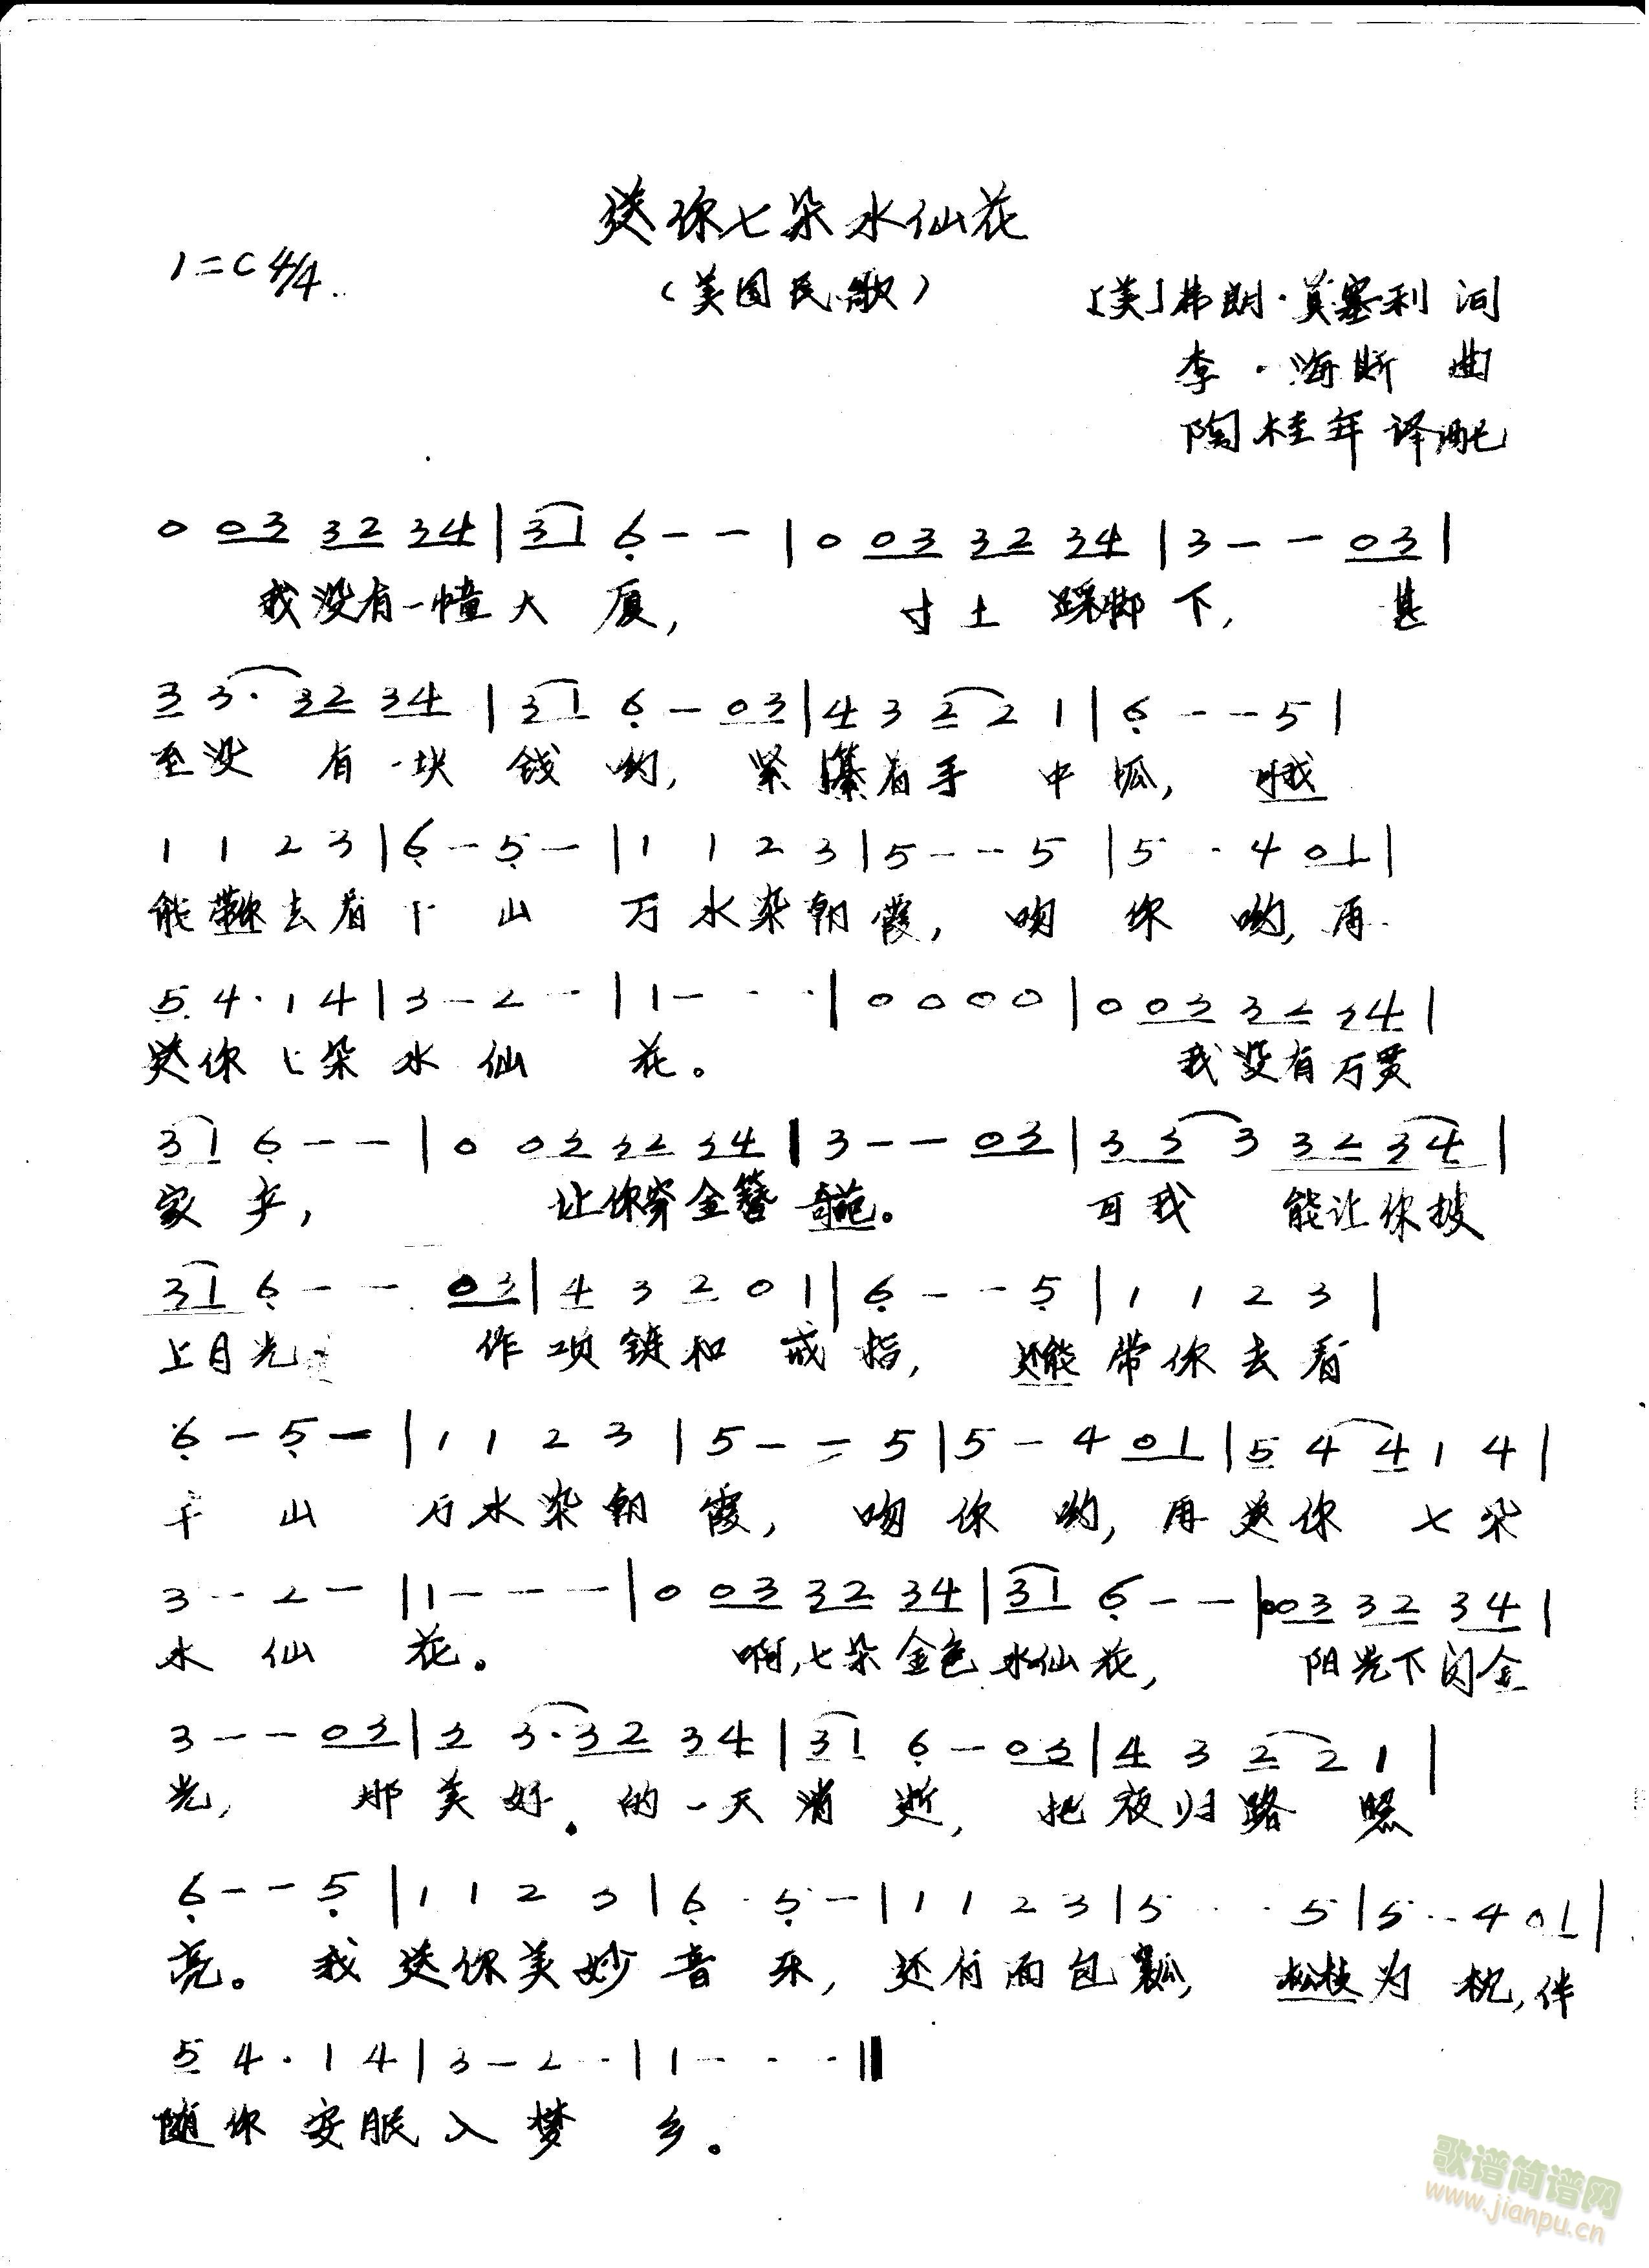 送你七朵水仙花
1=C 4/4
(美国民歌)
[美]弗朗·莫塞利 词
李·海斯 曲
陶桂年 译配
0 03 32 34 | 31 6 - - | 0 03 32 34 | 3 - - 03 |
我没有一幢大厦, 寸土踩脚下, 甚
3 3· 32 34 | 31 6 - 03 | 4 3 2 2 1 | 6 - - 5 |
至没有一块钱哟, 紧攥着手中抓, 可我
1 1 2 3 | 6 - 5 - | 1 1 2 3 | 5 - - 5 | 5 - 4 01 |
能带你去看千山万水染朝霞, 吻你哟, 再
5 4· 1 4 | 3 - 2 - | 1 - - - | 0 0 0 0 | 0 03 32 34 |
送你七朵水仙花。 我没有万贯
31 6 - - | 0 03 32 34 | 3 - - 03 | 33 3 32 34 |
家产, 让你穿金簪奇葩。 可我能让你披
31 6 - - 03 | 4 3 2 0 1 | 6 - - 5 | 1 1 2 3 |
上月光 作项链和戒指, 还能带你去看
6 - 5 - | 1 1 2 3 | 5 - - 5 | 5 - 4 01 | 5 4 4 1 4 |
千山万水染朝霞, 吻你哟, 再送你七朵
3 - 2 - | 1 - - - | 0 03 32 34 | 31 6 - - | 0 03 32 34 |
水仙花。 啊,七朵金色水仙花, 阳光下闪金
3 - - 03 | 3 3· 32 34 | 31 6 - 03 | 4 3 2 2 1 |
光, 那美好的一天消逝, 把夜归路照
6 - - 5 | 1 1 2 3 | 6 - 5 - | 1 1 2 3 | 5 - - 5 | 5 - 4 01 |
亮。我送你美妙音乐, 还有面包瓤, 松枝为枕, 伴
5 4· 1 4 | 3 - 2 - | 1 - - - ||
随你安眠入梦乡。
歌谱简谱网
www.jianpu.cn